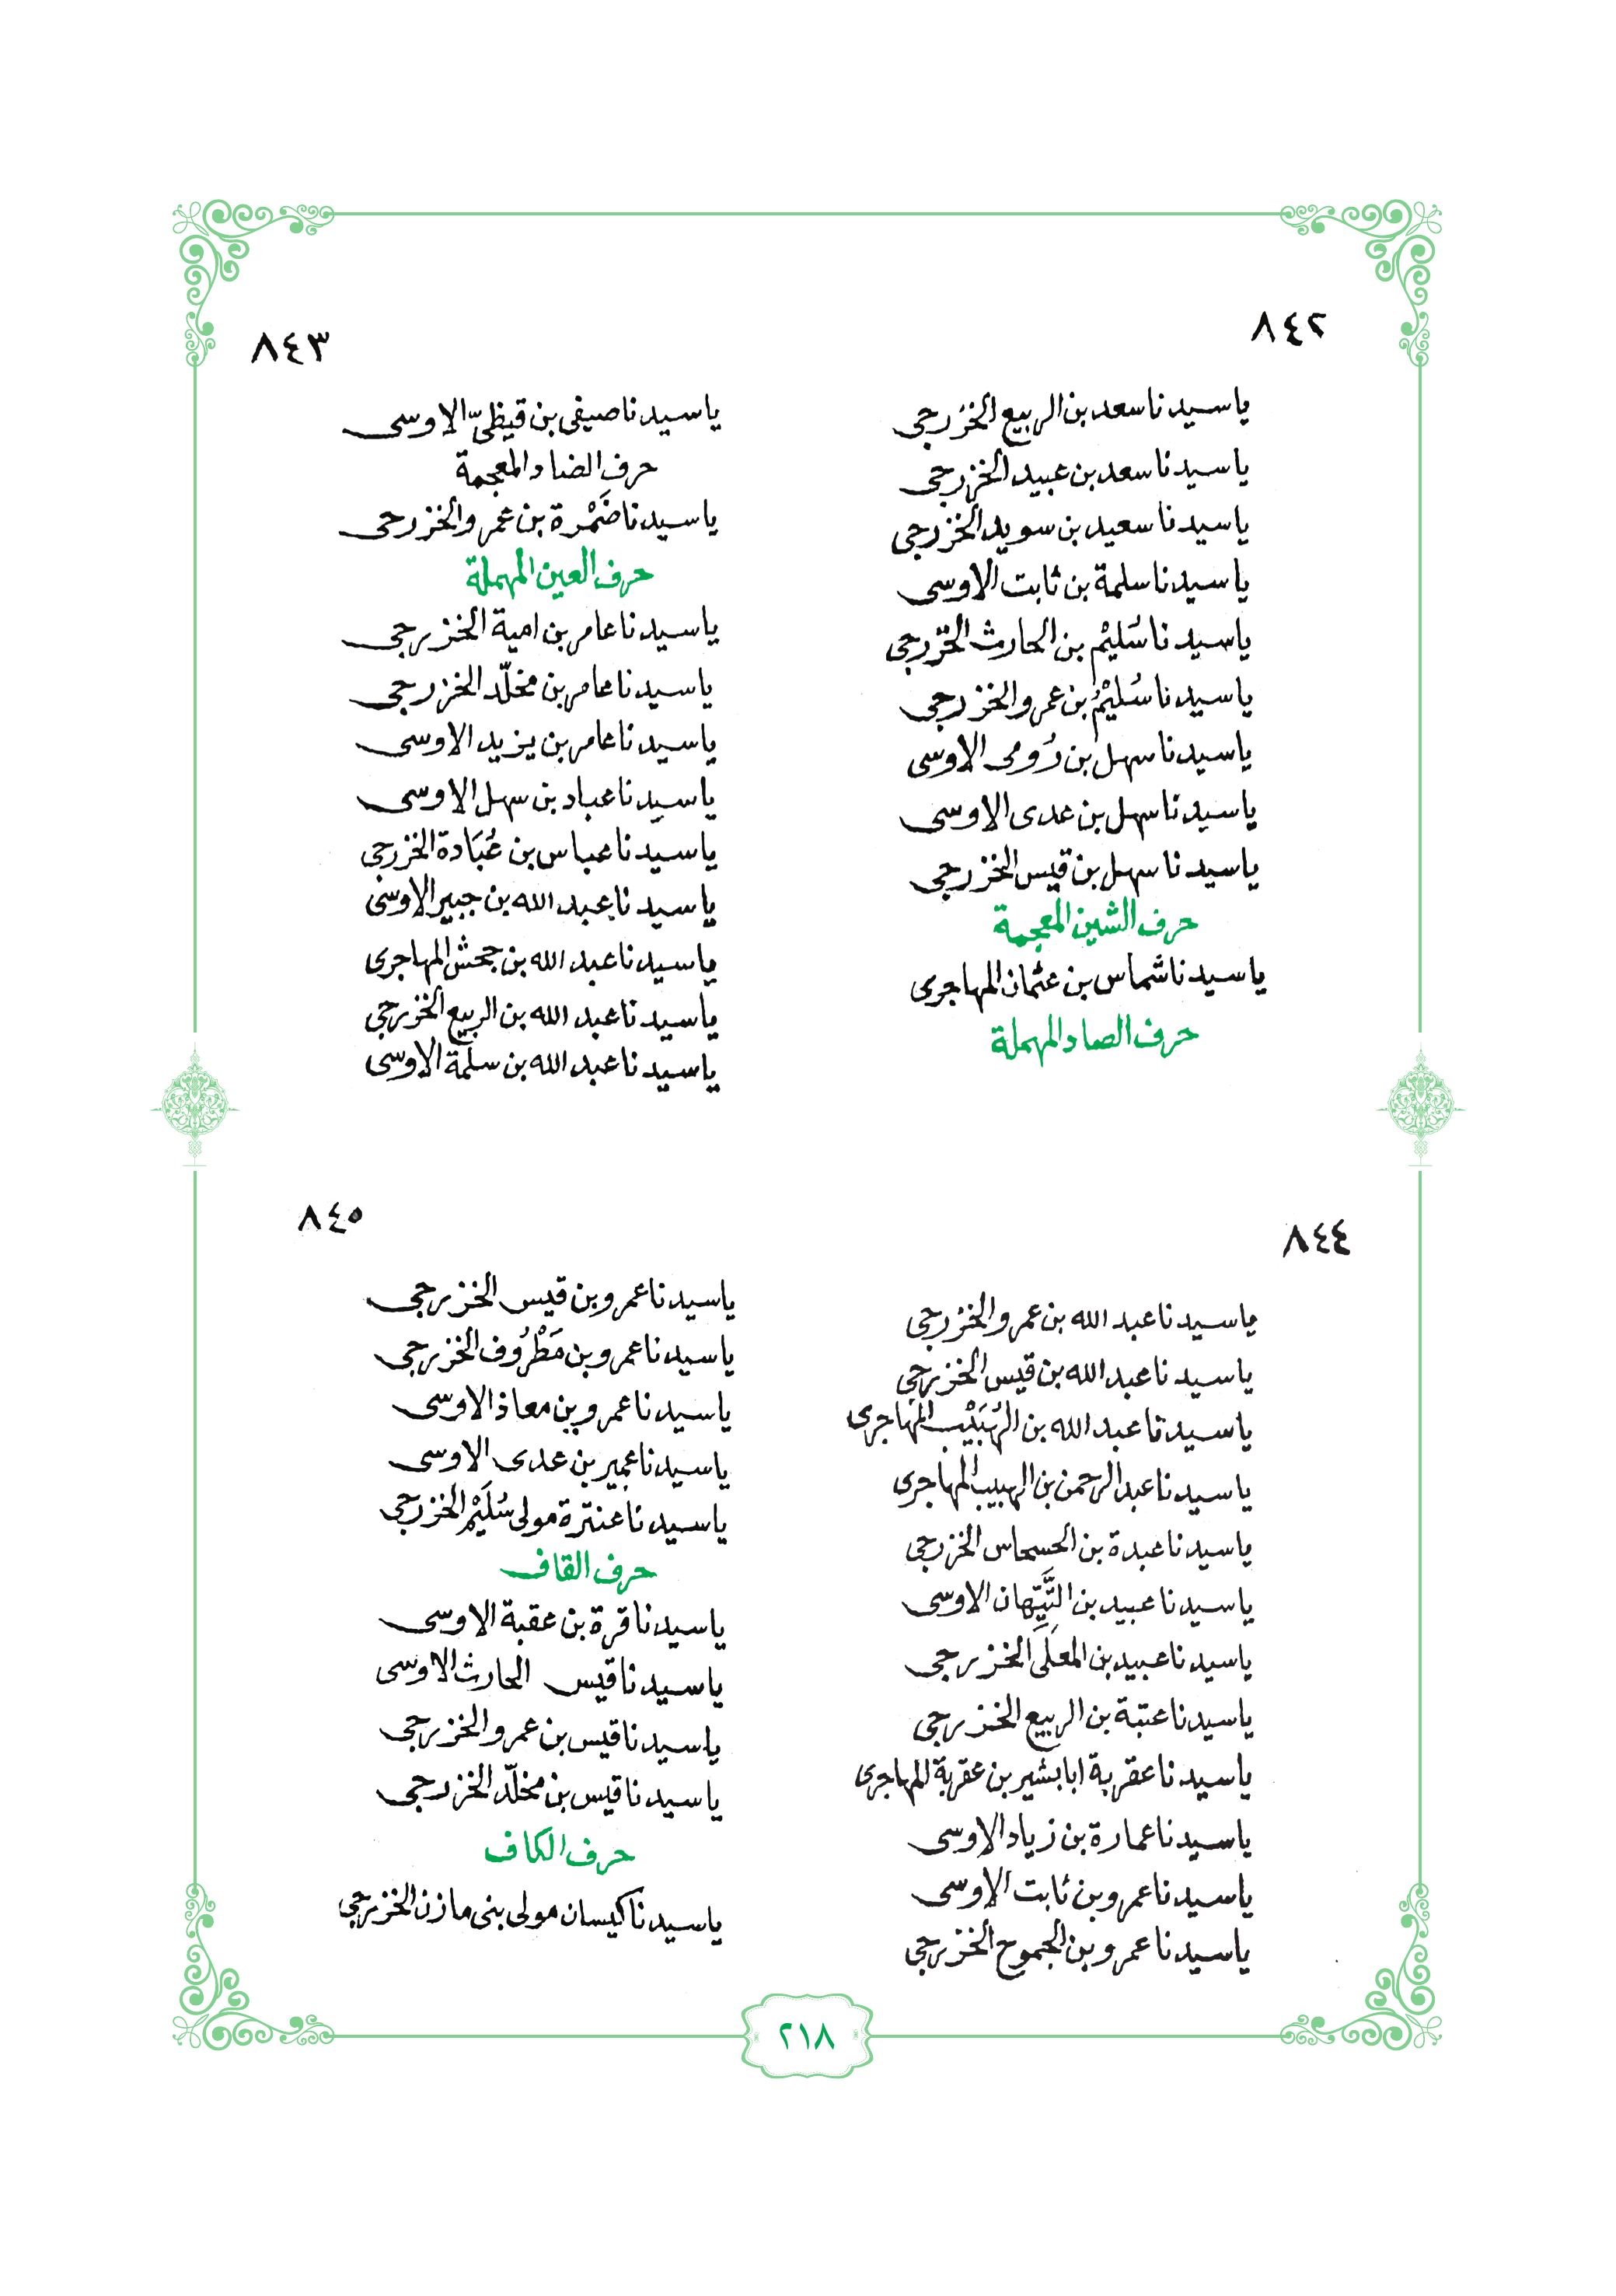 ٨٤٢
ياسيدنا سعد بن الربيع الخزرجى
ياسيدنا سعد بن عبيد الخزرجى
ياسيدنا سعيد بن سويد الخزرجى
ياسيدنا سلمة بن ثابت الاوسى
ياسيدنا سُليْم بن الحارث الخزرجى
ياسيدنا سُليْم بن عمرو الخزرجى
ياسيدنا سهل بن رُومى الاوسى
ياسيدنا سهل بن عدى الاوسى
ياسيدنا سهل بن قيس الخزرجى
حرف الشين المعجمة
ياسيدنا شماس بن عثمان المهاجرى
حرف الصاد المهملة
٨٤٣
ياسيدنا صيفى بن قيظىّ الاوسى
حرف الضاد المعجمة
ياسيدنا ضَمْرة بن عمرو الخزرجى
حرف العين المهملة
ياسيدنا عامر بن امية الخزرجى
ياسيدنا عامر بن مخلّد الخزرجى
ياسيدنا عامر بن يزيد الاوسى
ياسيدنا عباد بن سهل الاوسى
ياسيدنا عباس بن عُبَادة الخزرجى
ياسيدنا عبد الله بن جبير الاوسى
ياسيدنا عبد الله بن جحش المهاجرى
ياسيدنا عبد الله بن الربيع الخزرجى
ياسيدنا عبد الله بن سلمة الاوسى
٨٤٤
ياسيدنا عبد الله بن عمرو الخزرجى
ياسيدنا عبد الله بن قيس الخزرجى
ياسيدنا عبد الله بن الهُبَيْب المهاجرى
ياسيدنا عبد الرحمن بن الهبيب المهاجرى
ياسيدنا عبدة بن الحسحاس الخزرجى
ياسيدنا عبيد بن التَّيِّهان الاوسى
ياسيدنا عبيد بن المعلَى الخزرجى
ياسيدنا عتبة بن الربيع الخزرجى
ياسيدنا عقربة ابا بشير بن عقربة المهاجرى
ياسيدنا عمارة بن زياد الاوسى
ياسيدنا عمرو بن ثابت الاوسى
ياسيدنا عمرو بن الجموح الخزرجى
٨٤٥
ياسيدنا عمرو بن قيس الخزرجى
ياسيدنا عمرو بن مَطْرُوف الخزرجى
ياسيدنا عمرو بن معاذ الاوسى
ياسيدنا عمير بن عدى الاوسى
ياسيدنا عنترة مولى سُلَيْم الخزرجى
حرف القاف
ياسيدنا قرة بن عقبة الاوسى
ياسيدنا قيس الحارث الاوسى
ياسيدنا قيس بن عمرو الخزرجى
ياسيدنا قيس بن مخلّد الخزرجى
حرف الكاف
ياسيدنا كيسان مولى بنى مازن الخزرجى
٢١٨